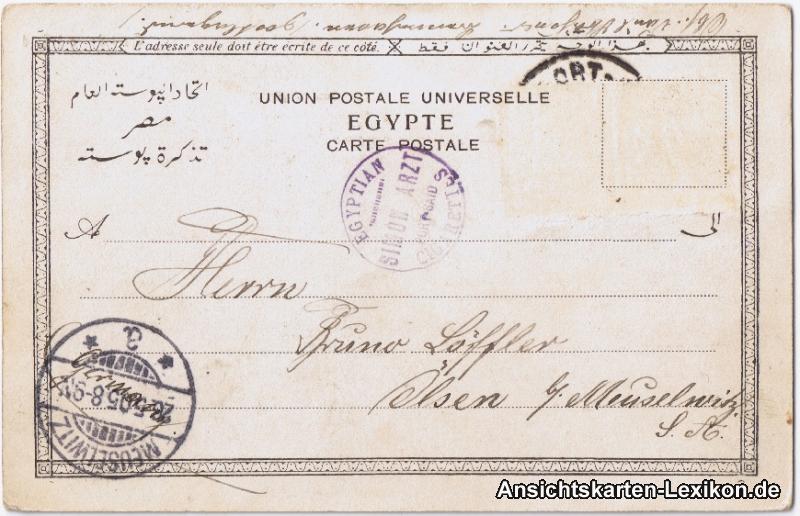 L'adresse seule doit être écrite de ce côté.
هذا الوجه يحرر العنوان فقط
PORT
اتحاد البوسته العام
مصر
تذكرة بوسته
UNION POSTALE UNIVERSELLE
EGYPTE
CARTE POSTALE
EGYPTIAN CIGARETTES
SIMON ARZT
PORT SAID
A
الى
Herrn
Bruno Löffler
Ölsen b/ Meuselwitz
S. A.
MEUSELWITZ
05.8-9V
a
Germany
Ansichtskarten-Lexikon.de